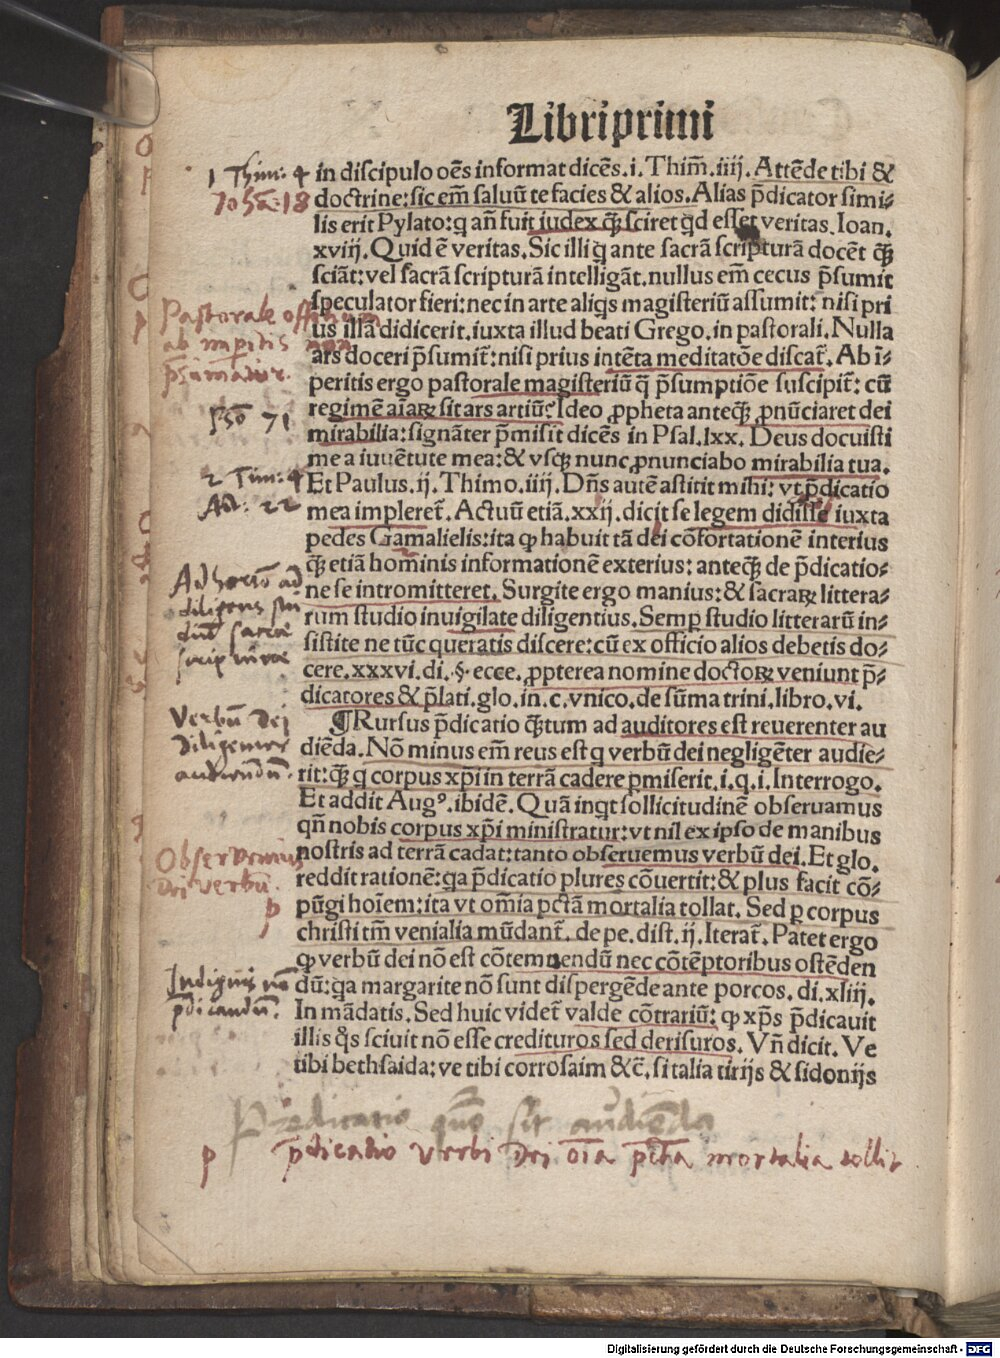 Libri primi
in discipulo oēs informat dicēs. i. Thim̄. iiij. Attēde tibi &
doctrine: sic em̄ saluū te facies & alios. Alias p̄dicator simi-
lis erit Pylato: q an̄ fuit iudex q̄ꝫ sciret qd esset veritas. Ioan.
xviij. Quid ē veritas. Sic illi q ante sacrā scripturā docēt q̄ꝫ
sciāt: vel sacrā scripturā intelligāt. nullus em̄ cecus p̄sumit
speculator fieri: nec in arte aliqs magisteriū assumit: nisi pri
us illā didicerit. iuxta illud beati Grego. in pastorali. Nulla
ars doceri p̄sumit̄: nisi prius intēta meditatōe discat̄. Ab ī-
peritis ergo pastorale magisteriū q̄ p̄sumptiōe suscipit̄: cū
regimē aīaꝝ sit ars artiū? Ideo ꝓpheta anteq̄ꝫ ꝓnūciaret dei
mirabilia: signāter p̄misit dicēs in Psal. lxx. Deus docuisti
me a iuuētute mea: & vsqꝫ nunc ꝓnunciabo mirabilia tua.
Et Paulus. ij. Thimo. iiij. Dn̄s autē astitit mihi: vt p̄dicatio
mea impleret̄. Actuū etiā. xxij. dicit se legem didisse iuxta
pedes Gamalielis: ita ꝙ habuit tā dei cōfortationē interius
q̄ꝫ etiā hominis informationē exterius: anteq̄ꝫ de p̄dicatio-
ne se intromitteret. Surgite ergo manius: & sacraꝝ littera-
rum studio inuigilate diligentius. Semp studio litterarū in-
sistite ne tūc queratis discere: cū ex officio alios debetis do-
cere. xxxvi. di. §. ecce. ꝓpterea nomine doctoꝝ veniunt p̄-
dicatores & p̄lati. glo. in. c. vnico. de sūma trini. libro. vi.
¶ Rursus p̄dicatio q̄ꝫtum ad auditores est reuerenter au
diēda. Nō minus em̄ reus est q verbū dei negligēter audie-
rit: q̄ꝫ q corpus xp̄i in terrā cadere ꝑmiserit. i. q. i. Interrogo.
Et addit Augꝰ. ibidē. Quā inqt sollicitudinē obseruamus
qn̄ nobis corpus xp̄i ministratur: vt nil ex ipso de manibus
nostris ad terrā cadat: tanto obseruemus verbū dei. Et glo.
reddit rationē: qa p̄dicatio plures cōuertit: & plus facit cō-
pūgi hoīem: ita vt om̄ia pctā mortalia tollat. Sed ꝑ corpus
christi tm̄ venialia mūdant̄. de pe. dist. ij. Iterat̄. Patet ergo
ꝙ verbū dei nō est cōtemnendū nec cōtēptoribus ostēden
dū: qa margarite nō sunt dispergēde ante porcos. di. xliij.
In mādatis. Sed huic videt̄ valde cōtrariū: ꝙ xp̄s p̄dicauit
illis qs sciuit nō esse credituros sed derisuros. Vn̄ dicit. Ve
tibi bethsaida: ve tibi corrosaim &c̄. si talia tirijs & sidonijs
1 Thim: 4
Johā: 18
Pastorale officium
ab imperitis non
p̄sumatur.
Psō 71
2 Tim: 4
Act: 22
diligens stu
diū sacrae
scripturae
Verbū Dei
diligenter
audiendū.
Observemus
Dei verbū.
p
Indignis nō
p̄dicandū.
Praedicatio quō sit audiēda
p p̄dicatio verbi Dei oīa pctā mortalia tollit
Digitalisierung gefördert durch die Deutsche Forschungsgemeinschaft - DFG